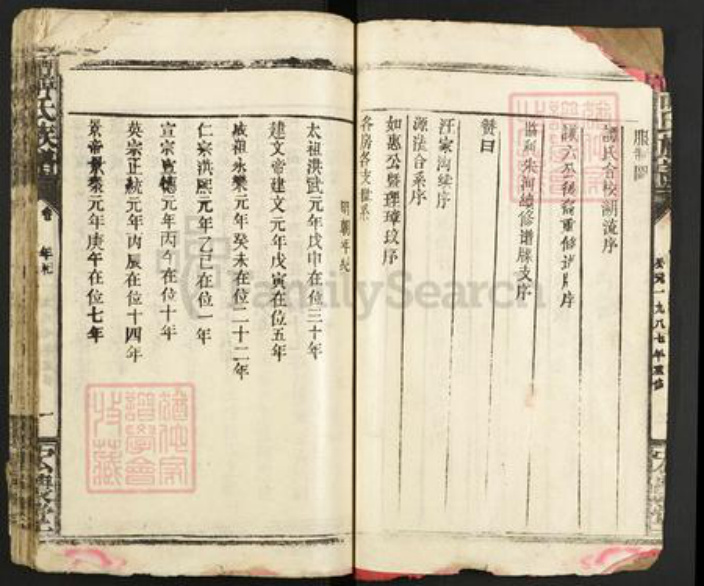 服制圖
譚氏合校溯流序
臨利朱河續修譜牒支序
贊曰
汪家溝續序
源法合系序
如惠公暨理璋玟序
各房各支世系
公元一九八七年重修
明朝年紀
太祖洪武元年戊申在位三十年
建文帝建文元年戊寅在位五年
成祖永樂元年癸未在位二十二年
仁宗洪熙元年乙巳在位一年
宣宗宣德元年丙午在位十年
英宗正統元年丙辰在位十四年
景帝景泰元年庚午在位七年
卷
年紀
一
FamilySearch